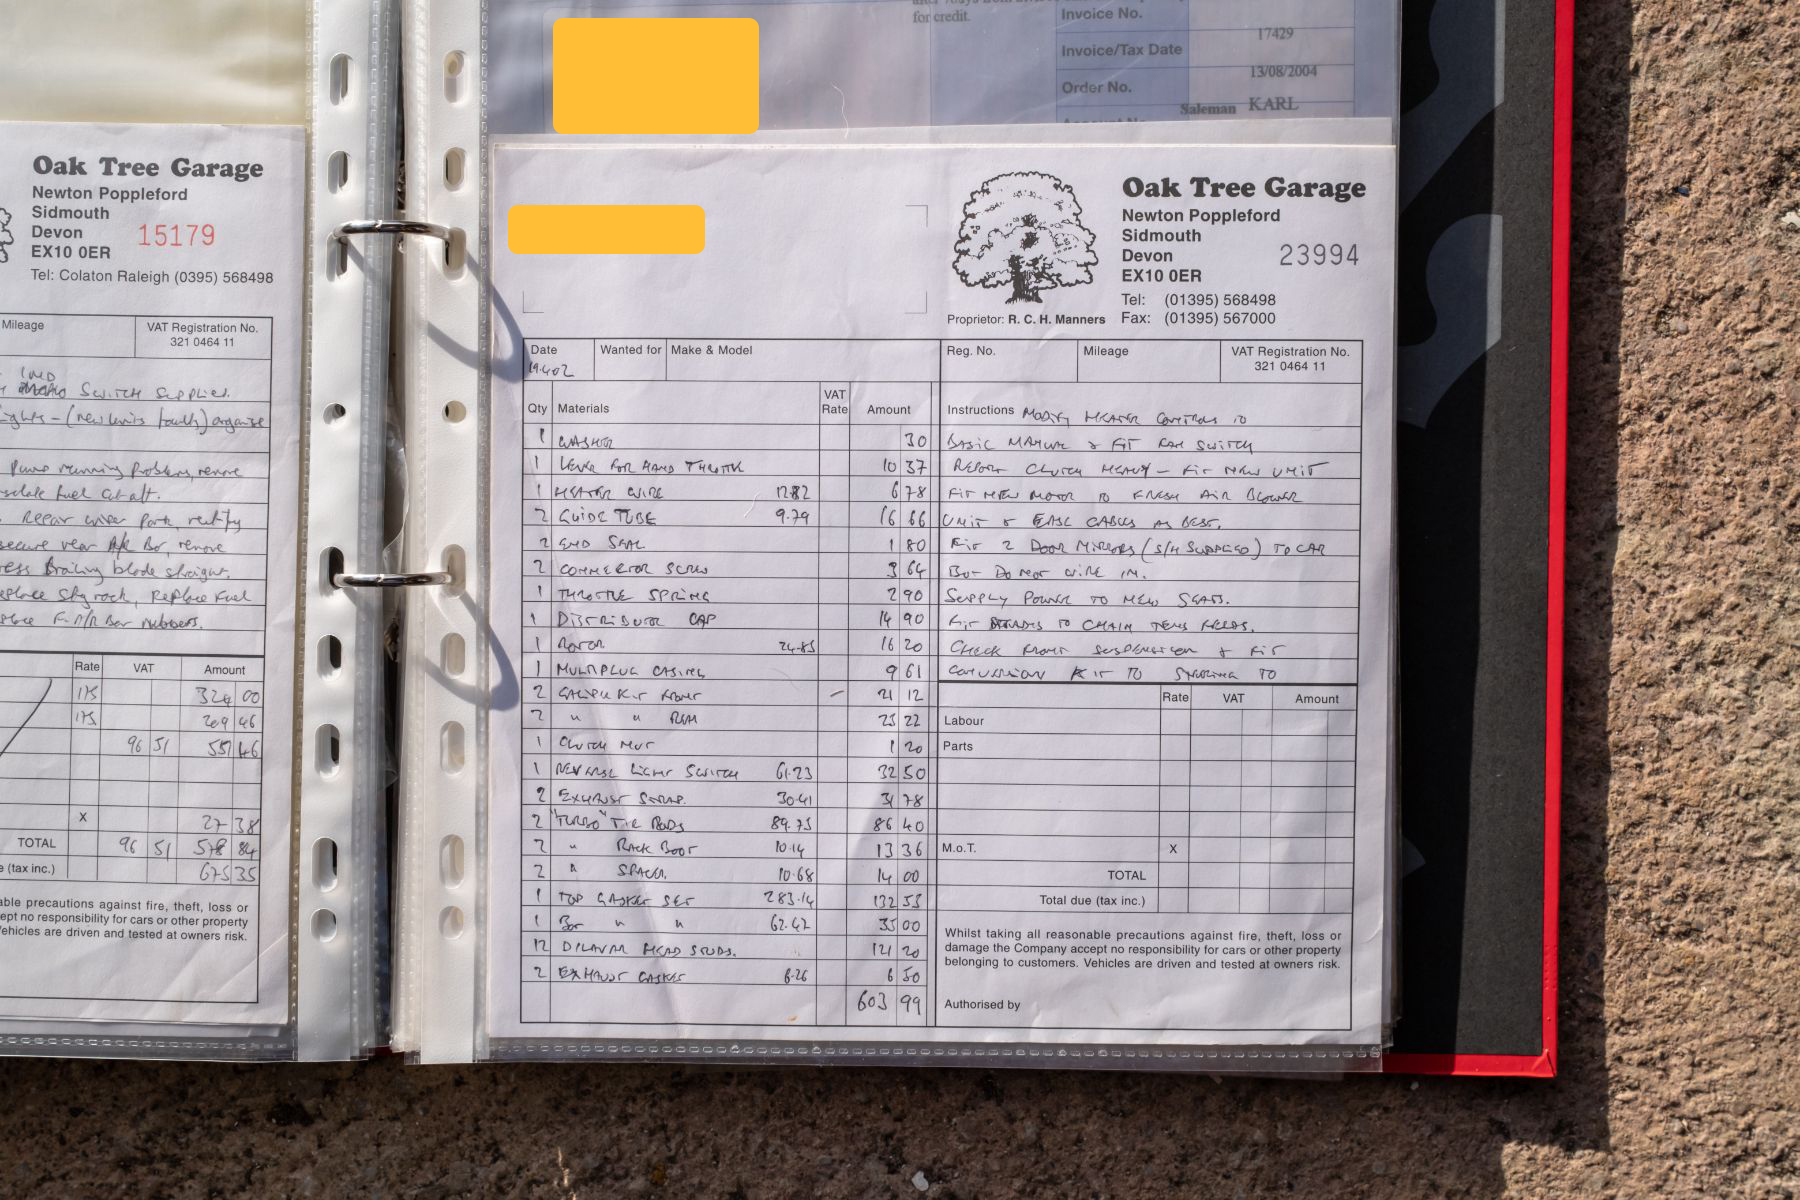 for credit.
Invoice No.
17429
Invoice/Tax Date
13/08/2004
Order No.
Saleman KARL
Oak Tree Garage
Newton Poppleford
Sidmouth
Devon
EX10 0ER
15179
Tel: Colaton Raleigh (0395) 568498
Mileage
VAT Registration No.
321 0464 11
IND
SWITCH SUPPLIED.
Lights - (new units faulty) organise
Pump running problem, remove
fuel cut aft.
Repair wiper park, rectify
secure rear Bar, remove
blade straight.
replace Skyrock, Replace Fuel
F.P/R Bar rubbers.
Rate VAT Amount
175 324 00
175 209 46
96 51 551 46
X 27 38
TOTAL 96 51 578 84
(tax inc.) 675 35
able precautions against fire, theft, loss or
ept no responsibility for cars or other property
Vehicles are driven and tested at owners risk.
Oak Tree Garage
Newton Poppleford
Sidmouth
Devon
EX10 0ER
23994
Tel: (01395) 568498
Fax: (01395) 567000
Proprietor: R. C. H. Manners
Date Wanted for Make & Model
19.4.02
Reg. No. Mileage VAT Registration No.
321 0464 11
Qty Materials VAT Rate Amount
1 WASHER 30
1 LEVER FOR HAND THROTTLE 10 37
1 HEATER WIRE 12.82 6 78
2 GUIDE TUBE 9.79 16 66
2 END SEAL 1 80
2 CONNECTOR SCREW 3 64
1 THROTTLE SPRING 2 90
1 DISTRIBUTOR CAP 14 90
1 ROTOR 24.85 16 20
1 MULTIPLUG CASING 9 61
2 CALIPER KIT FRONT 21 12
2 " " REAR 25 22
1 CLUTCH NUT 1 20
1 REVERSE LIGHT SWITCH 61.23 32 50
2 EXHAUST STRAP. 30.41 31 78
2 "TURBO" TIE RODS 89.75 86 40
2 " RACK BOOT 10.14 13 36
2 " SPACER. 10.68 14 00
1 TOP GASKET SET 283.14 132 55
1 BOT " " 62.42 35 00
12 DILAVAR HEAD STUDS. 121 20
2 EXHAUST GASKET 8.26 6 50
603 99
Instructions MODIFY HEATER CONTROLS TO
BASIC MANUAL & FIT FAN SWITCH
REPORT CLUTCH HEAVY - FIT NEW UNIT
FIT NEW MOTOR TO FRESH AIR BLOWER
UNIT & EASE CABLES AS BEST.
FIT 2 DOOR MIRRORS (S/H SUPPLIED) TO CAR
BUT DO NOT WIRE IN.
SUPPLY POWER TO NEW SEATS.
FIT TO CHAIN TENS FEEDS.
CHECK FRONT SUSPENSION & FIT
CONVERSION KIT TO STEERING TO
Rate VAT Amount
Labour
Parts
M.o.T. X
TOTAL
Total due (tax inc.)
Whilst taking all reasonable precautions against fire, theft, loss or
damage the Company accept no responsibility for cars or other property
belonging to customers. Vehicles are driven and tested at owners risk.
Authorised by